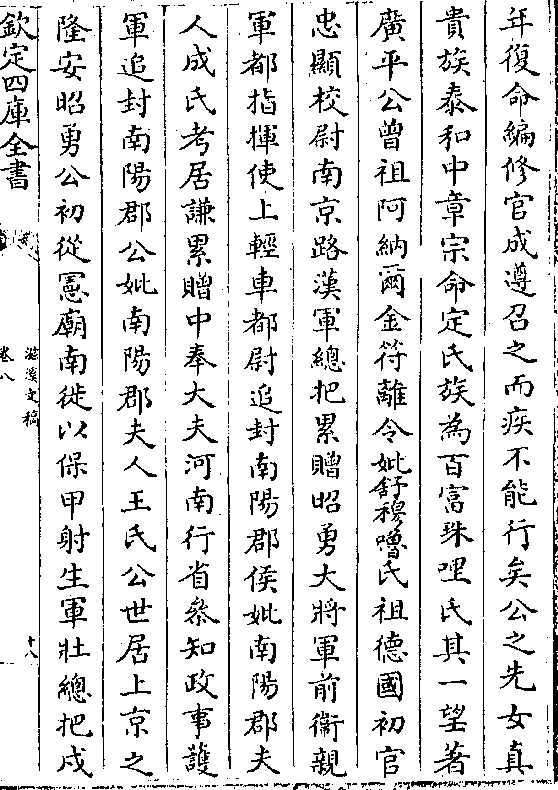 年復命編修官成遵召之而疾不能行矣公之先女真
貴族泰和中章宗命定氏族為百富珠哩氏其一望著
廣平公曾祖阿納爾金符離令妣舒穆嚕氏祖德國初官
忠顯校尉南京路漢軍總把累贈昭勇大將軍前衞親
軍都指揮使上輕車都尉追封南陽郡侯妣南陽郡夫
人成氏考居謙累贈中奉大夫河南行省叅知政事護
軍追封南陽郡公妣南陽郡夫人王氏公世居上京之
隆安昭勇公初從憲廟南徙以保甲射生軍壯總把戍
欽定四庫全書
滋溪文稿
卷八
十八